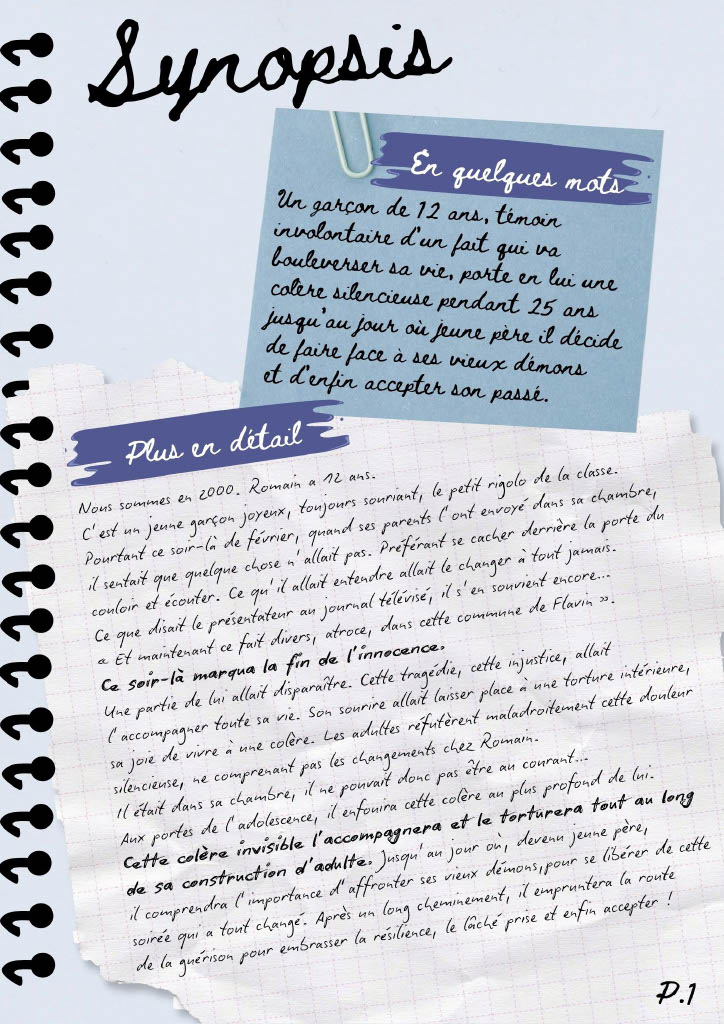 Synopsis
En quelques mots
Un garçon de 12 ans, témoin
involontaire d'un fait qui va
bouleverser sa vie, porte en lui une
colère silencieuse pendant 25 ans
jusqu'au jour où jeune père il décide
de faire face à ses vieux démons
et d'enfin accepter son passé.
Plus en détail
Nous sommes en 2000. Romain a 12 ans.
C'est un jeune garçon joyeux, toujours souriant, le petit rigolo de la classe.
Pourtant ce soir-là de février, quand ses parents l'ont envoyé dans sa chambre,
il sentait que quelque chose n'allait pas. Préférant se cacher derrière la porte du
couloir et écouter. Ce qu'il allait entendre allait le changer à tout jamais.
Ce que disait le présentateur au journal télévisé, il s'en souvient encore...
« Et maintenant ce fait divers, atroce, dans cette commune de Flavin ».
Ce soir-là marqua la fin de l'innocence.
Une partie de lui allait disparaître. Cette tragédie, cette injustice, allait
l'accompagner toute sa vie. Son sourire allait laisser place à une torture intérieure,
sa joie de vivre à une colère. Les adultes réfutèrent maladroitement cette douleur
silencieuse, ne comprenant pas les changements chez Romain.
Il était dans sa chambre, il ne pouvait donc pas être au courant...
Aux portes de l'adolescence, il enfouira cette colère au plus profond de lui.
Cette colère invisible l'accompagnera et le torturera tout au long
de sa construction d'adulte. Jusqu'au jour où, devenu jeune père,
il comprendra l'importance d'affronter ses vieux démons,pour se libérer de cette
soirée qui a tout changé. Après un long cheminement, il empruntera la route
de la guérison pour embrasser la résilience, le lâché prise et enfin accepter !
P.1